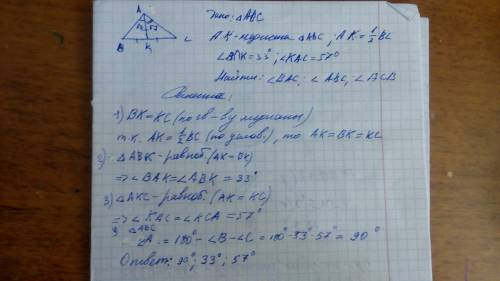 Дано: △ABC
AK-медиана △ABC, AK = 1/2 BC
∠BAK = 33°, ∠KAC = 57°
Найти: ∠BAC; ∠ABC, ∠ACB
A 33 57
B K C
Решение:
1) BK = KC (по св-ву медианы)
т.к. AK = 1/2 BC (по услов), то AK = BK = KC
2) △ABK - равноб. (AK = BK)
=> ∠BAK = ∠ABK = 33°
3) △AKC - равноб. (AK = KC)
=> ∠KAC = ∠KCA = 57°
△ABC
∠A = 180° - ∠B - ∠C = 180° - 33° - 57° = 90°
Ответ: 90°; 33°; 57°